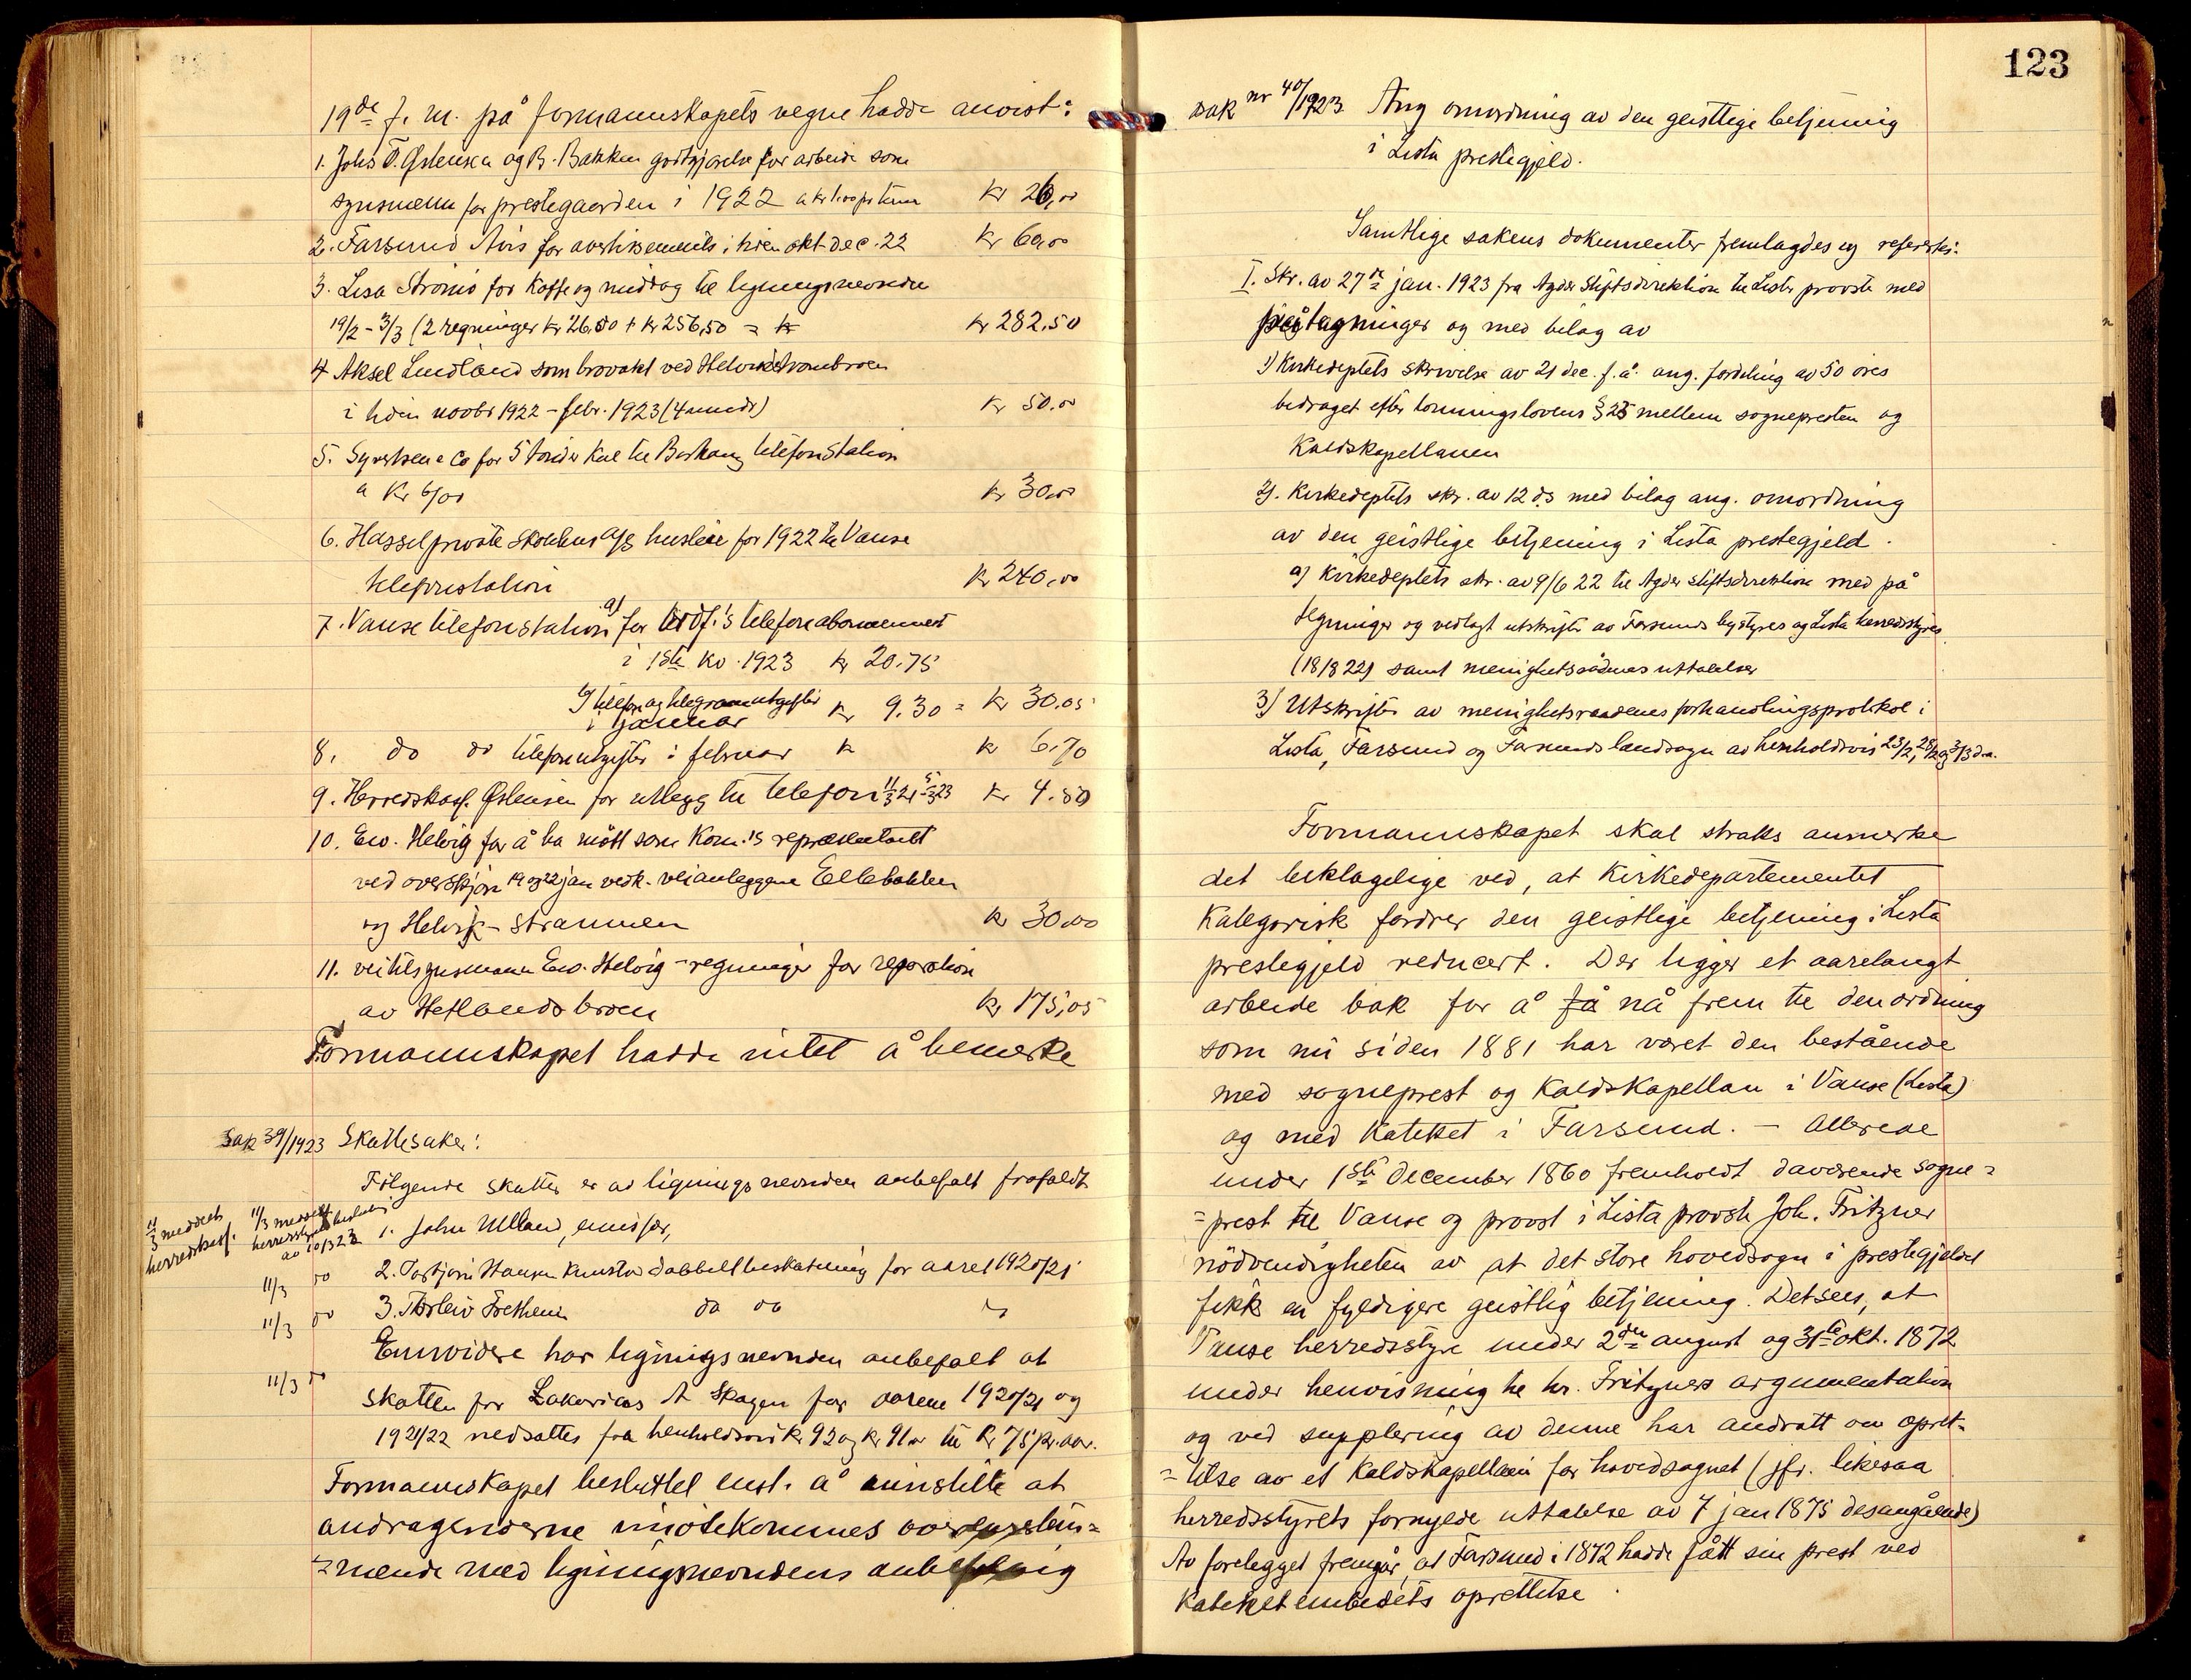 19de f. m. på formannskapets vegne hadde anvist:
1. Johs T. Østensen og B. Bakken godtgjørelse for arbeide som
synsmenn for prestegaarden i 1922 kr 26,00
2. Farsund Avis for avertissements i tiden okt-dec. 22 kr 60,00
3. Lisa Strømø for kaffe og middag til ligningsnevnden
19/2 - 3/3 (2 regninger kr 26,00 + kr 256,50 = kr kr 282,50
4 Aksel Lundland som brovakt ved Helvikstrømbroen
i tiden novbr 1922 - febr. 1923 (4 mndr) kr 50,00
5. Syvertsen & Co for 5 tønder kul til Borhaug telefonstation
a kr 6/00 kr 30,00
6. Hassel private skolehus a/s husleie for 1922 til Vanse
telefonstation kr 240,00
7. Vanse telefonstation a) for ordf.'s telefonabonnement
i 1ste kv. 1923 kr 20.75
b) telefon og telegramutgifter
i januar kr 9.30 = kr 30.05
8. do do telefonutgifter i februar kr kr 6.70
9. Herredskass. Østensen for utlegg til telefon 11/3 21 - 5/3 23 kr 4.80
10. Ew. Helvig for å ha møtt som kom.'s representant
ved overskjøn 19 og 22 jan vedk. veianleggene Ellebakken
og Helvik-strømmen kr 30,00
11. veitilsynsmann Ew. Helvig - regninger for reparation
av Hetlandsbroen kr 175,05
Formannskapet hadde intet å bemerke
Sak 39/1923 Skattesaker:
Følgende skatter er av ligningsnevnden anbefalt frafaldt
11/3 meddelt herredskass.
11/3 meddelt herredsstyrets beslutn. av 10/3 23
1. John Ulland, emissær,
11/3 do 2. Torbjørn Hansen Kunsto dobbeltbeskatning for aaret 1920/21
11/3 do 3. Thorleiv Fretheim do do
Emvidere har ligningsnevnden anbefalt at
11/3 do skatten for Zakarias A Skagen for aarene 1920/21 og
1921/22 nedsættes fra henholdsvis kr 92 og kr 91 til kr 75 pr. aar.
Formannskapet besluttet enst. å innstille at
andragenderne imøtekommes overenstem-
=mende med ligningsnevndens anbefaling
123
Sak nr 40/1923 Ang omordning av den geistlige betjening
i Lista prestegjeld.
Samtlige sakens dokumenter fremlagdes og refererts:
I. Skr. av 27de jan. 1923 fra Agder Stiftsdirektion til Lister provsti med
påtegninger og med bilag av
1) Kirkedeptets skrivelse av 21 dec. f.å. ang. fordeling av 50 øres
bidraget efter lønningslovens § 25 mellem sognepresten og
Kaldskapellanen
2). Kirkedeptets skr. av 12 ds med bilag ang. omordning
av den geistlige betjening i Lista prestegjeld.
a) Kirkedeptets skr. av 9/6 22 til Agder stiftsdirektion med på
tegninger og vedlagt utskrifter av Farsunds bystyres og Lista herredsstyres
(18/8 22) samt menighetsrådenes uttalelser
3) Utskrifter av menighetsraadenes forhandlingsprotokol i
Lista, Farsund og Farsunds landsogn av henholdsvis 23/2, 28/2 og 3/3 d.a.
Formannskapet skal straks anmerke
det beklagelige ved, at Kirkedepartementet
kategorisk fordrer den geistlige betjening i Lista
prestegjeld reducert. Der ligger et aarelangt
arbeide bak for å få nå frem til den ordning
som nu siden 1881 har været den bestående
med sogneprest og Kaldskapellan i Vanse (Lista)
og med Kateket i Farsund. - Allerede
under 1ste december 1860 fremholdt daværende sogne=
=prest til Vanse og provst i Lista provsti Joh. Fritzner
nødvendigheten av at det store hovedsogn i prestegjeldet
fikk en fyldigere geistlig betjening. Det sees, at
Vanse herredsstyre under 2den august og 31te okt. 1872
under henvisning til hr. Fritzners argumentation
og ved supplering av denne har andratt om opret=
=telse av et Kaldskapellani for hovedsognet (jfr. likesaa
herredsstyrets fornyede uttalelse av 7 jan 1875 desangående)
Av forelegget fremgår, at Farsund i 1872 hadde fått sin prest ved
Kateketembedets oprettelse